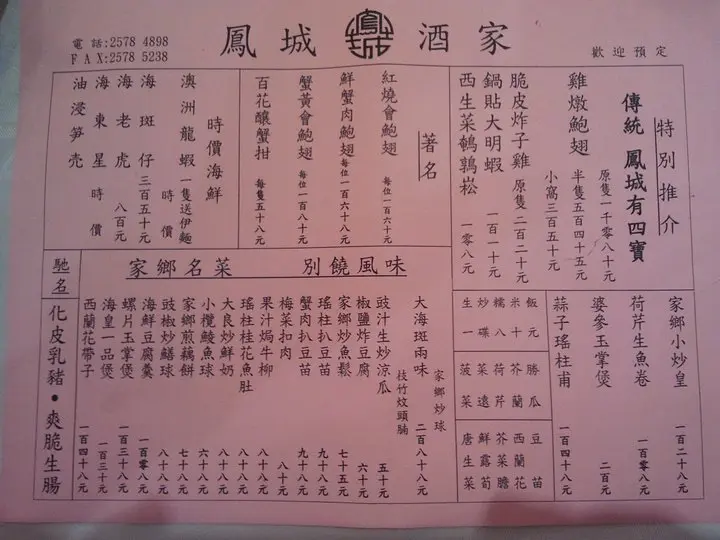 鳳城酒家
電話:2578 4898
FAX:2578 5238
歡迎預定
特別推介
傳統 鳳城有四寶
雞燉鮑翅 原隻一千零八十元
半隻五百四十五元
小窩三百五十元
脆皮炸子雞 原隻二百二十元
鍋貼大明蝦 一百一十元
西生菜鵪鶉崧 一零八元
著名
紅燒會鮑翅 每位一百六十元
鮮蟹肉鮑翅 每位一百六十八元
蟹黃會鮑翅 每位一百八十元
百花釀蟹拑 每隻五十八元
時價海鮮
澳洲龍蝦 一隻送伊麵 時價
海斑仔 三百五十元
海老虎 八百元
海東星 時價
油浸笋壳
家鄉小炒皇 一百二十八元
荷芹生魚卷 一百零八元
婆參玉掌煲 二百元
蒜子瑤柱甫 一百四十八元
生炒糯米飯
一碟八十元
菠菜 菜遠 荷芹 芥蘭 勝瓜
唐生菜 鮮露荀 芥菜膽 西蘭花 豆苗
家鄉名菜 別饒風味
大海斑兩味 家鄉炒球
枝竹炆頭腩 二百八十八元
豉汁生炒涼瓜 五十元
椒鹽炸豆腐 六十元
家鄉炒魚鬆 七十五元
瑤柱扒豆苗 九十八元
蟹肉扒豆苗 九十八元
梅菜扣肉 八十元
果汁焗牛柳 八十八元
瑤柱桂花魚肚 八十八元
大良炒鮮奶 六十八元
小欖鯪魚球 六十八元
家鄉煎藕餅 七十八元
豉椒炒鱔球 八十八元
海鮮豆腐羹 一百零八元
螺片玉掌煲 一百三十八元
海皇一品煲 一百三十元
西蘭花帶子 一百四十八元
馳名
化皮乳豬•爽脆生腸